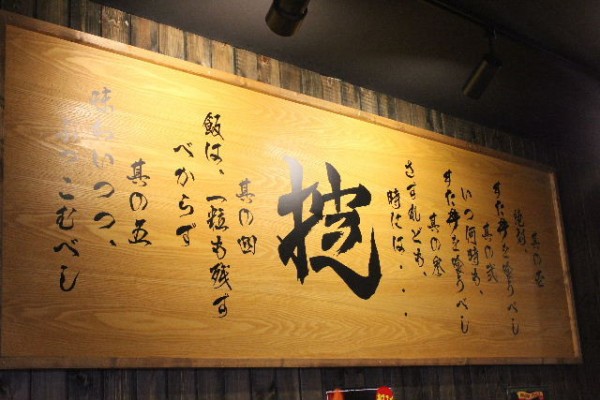 其の壱
絶対、
すた丼を喰うべし
其の弐
いつ何時も、
すた丼を喰うべし
其の参
さすれども、
時には・・・
掟
其の四
飯は、一粒も残す
べからず
其の五
味わいつつ、
かっこむべし